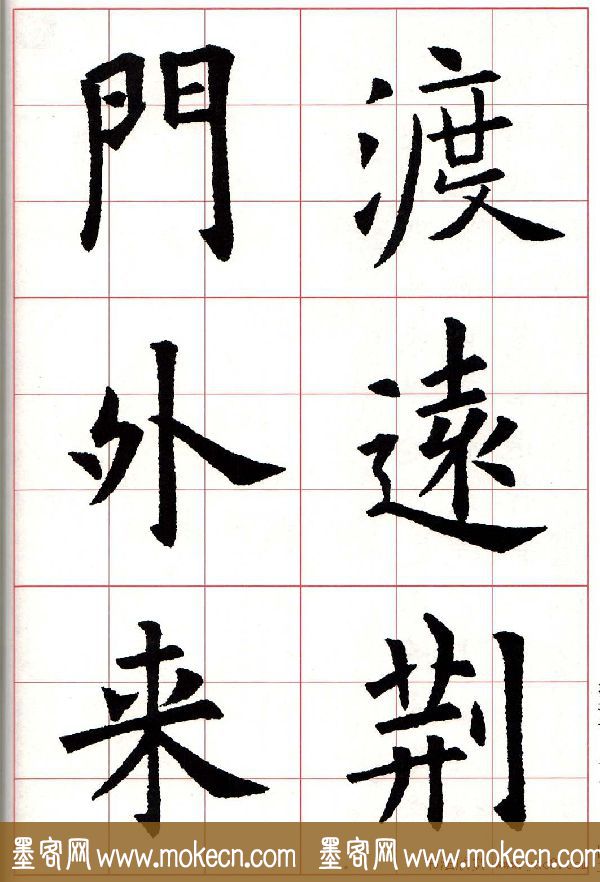 渡遠荆
門外来
墨客网 www.mokecn.com 墨客网 www.mokecn.com 墨客网